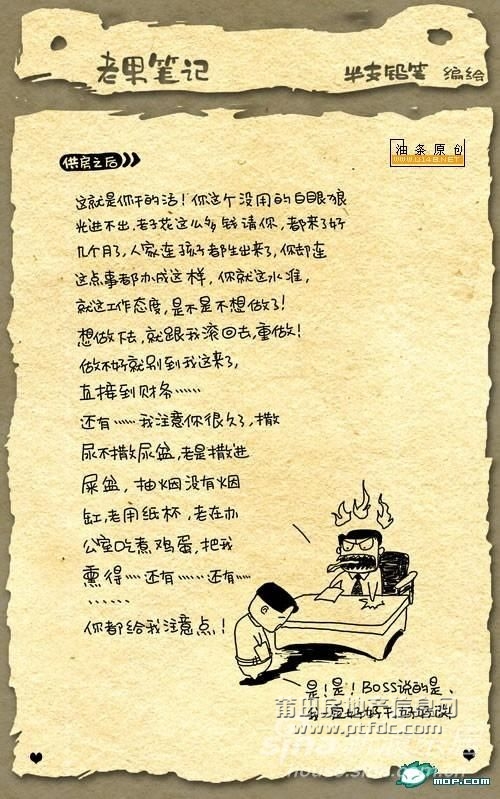 老果笔记
半支铅笔 编绘
油条原创
WWW.U148.NET
供房之后
这就是你干的活！你这个没用的白眼狼
光进不出，老子花这么多钱请你，都来了好
几个月了，人家连孩子都生出来了，你却连
这点事都办成这样，你就这水准，
就这工作态度，是不是不想做了！
想做下去，就跟我滚回去，重做！
做不好就别到我这来了，
直接到财务……
还有……我注意你很久了，撒
尿不撒尿盆，老是撒进
屎盆，抽烟没有烟
缸，老用纸杯，老在办
公室吃煮鸡蛋，把我
熏得……还有……还有……
……
你都给我注意点！
是！是！BOSS说的是、
莆田房地产信息网
www.ptfdc.com
MOP.COM